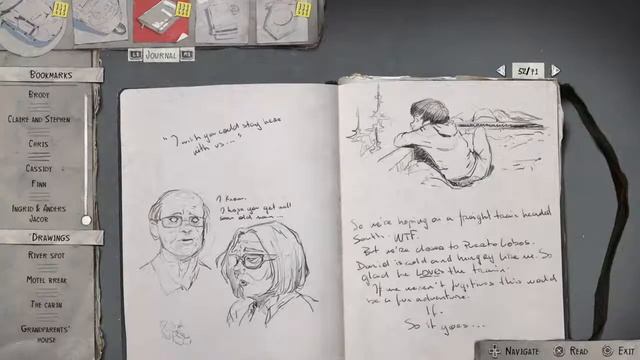 L1 JOURNAL R1
52/71
BOOKMARKS
BRODY
CLAIRE AND STEPHEN
CHRIS
CASSIDY
FINN
INGRID & ANDERS
JACOB
DRAWINGS
RIVER SPOT
MOTEL BREAK
THE CABIN
GRANDPARENTS'
HOUSE
"I wish you could stay here
with us..."
I know.
I hope you get well
soon old man...
So we're hoping on a freight train headed
South. WTF.
But we're closer to Puerto Lobos.
Daniel is cold and hungry like me. So
glad he LOVES the train.
If we weren't fugitives this would
be a fun adventure.
If.
So it goes...
NAVIGATE READ EXIT